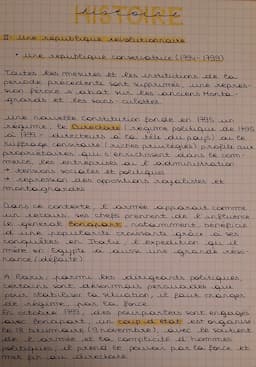 HISTOIRE
II- Une république révolutionnaire
• Une république conservatrice (1794-1799)
Toutes les mesures et les institutions de la
période précédente sont supprimées, une répres-
sion féroce s'abat sur les anciens Monta-
gnards et les sans-culottes.
Une nouvelle constitution fonde en 1795 un
régime, le Directoire (régime politique de 1795
à 1799 directeurs à la tête du pays) où le
suffrage censitaire (riches privilégiés) profite aux
propriétaires qui s'enrichissent dans le com-
merce, les entreprises ou l'administration
→ tensions sociales et politiques
→ répression des oppositions royalistes et
montagnardes
Dans ce contexte, l'armée apparaît comme
un recours, ses chefs prennent de l'influence
le général Bonaparte notamment, bénéficie
d'une popularité croissante grâce à ses
conquêtes en Italie, l'expédition qu'il
mène en Egypte a aussi une grande réso-
nance (défaite)
A Paris, parmi les dirigeants politiques,
certains sont désormais persuadés que
pour stabiliser la situation, il faut changer
de régime, par la force.
En octobre 1799, des pourparlers sont engagés
avec Bonaparte, un coup d'état est organisé
le 18 brumaire (9 novembre), avec le soutient
de l'armée et la complicité d'hommes
politiques, il prend le pouvoir par la force et
met fin au directoire